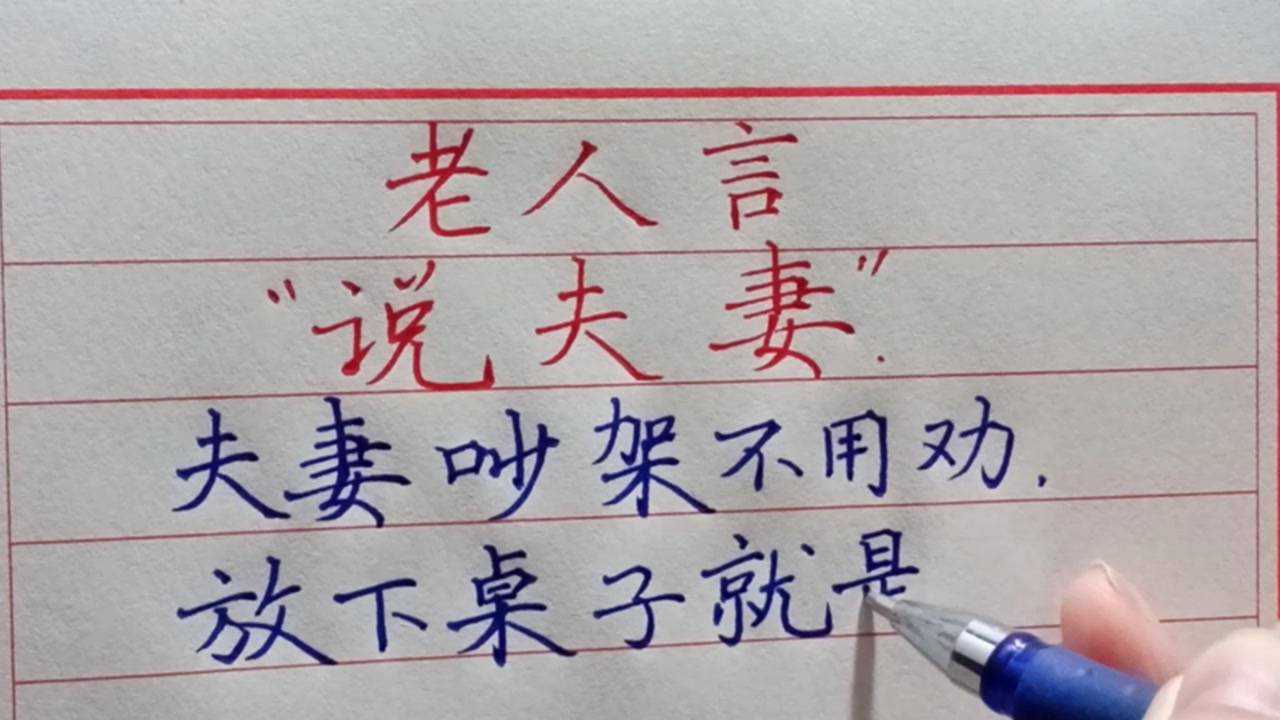 老人言
“说夫妻”.
夫妻吵架不用劝.
放下桌子就是